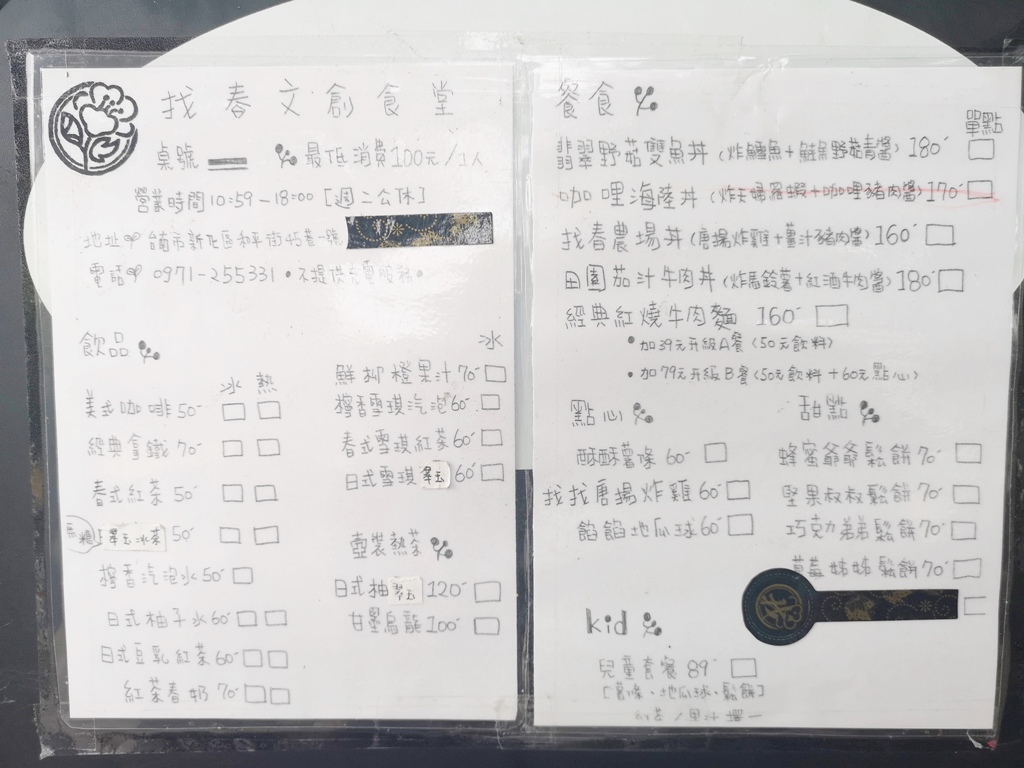 找春文創食堂
桌號 最低消費100元/1人
營業時間10:59-18:00[週二公休]
地址 台南市新化區和平街45巷 號
電話 0971-255331 • 不提供充電服務 •
飲品
冰 熱
美式咖啡 50
經典拿鐵 70
春式紅茶 50
翠玉冰茶 50
檸香汽泡水 50
日式柚子水 60
日式豆乳紅茶 60
紅茶春奶 70
冰
鮮抑橙果汁 70
檸香雪琪汽泡 60
春式雪琪紅茶 60
日式雪琪翠玉 60
壺裝熱茶
日式柚翠玉 120
甘墨烏龍 100
餐食
單點
翡翠野菇雙魚丼(炸鱈魚+鮭魚野菇青醬)180
咖哩海陸丼(炸天婦羅蝦+咖哩豬肉醬)170
找春農場丼(唐揚炸雞+薑汁豬肉醬)160
田園茄汁牛肉丼(炸馬鈴薯+紅酒牛肉醬)180
經典紅燒牛肉麵 160
• 加39元升級A餐(50元飲料)
• 加79元升級B餐(50元飲料+60元點心)
點心
酥酥薯條 60
找找唐揚炸雞 60
餡餡地瓜球 60
甜點
蜂蜜爺爺鬆餅 70
堅果叔叔鬆餅 70
巧克力弟弟鬆餅 70
草莓姊姊鬆餅 70
kid
兒童套餐 89
[薯條・地瓜球・鬆餅]
紅茶/果汁擇一